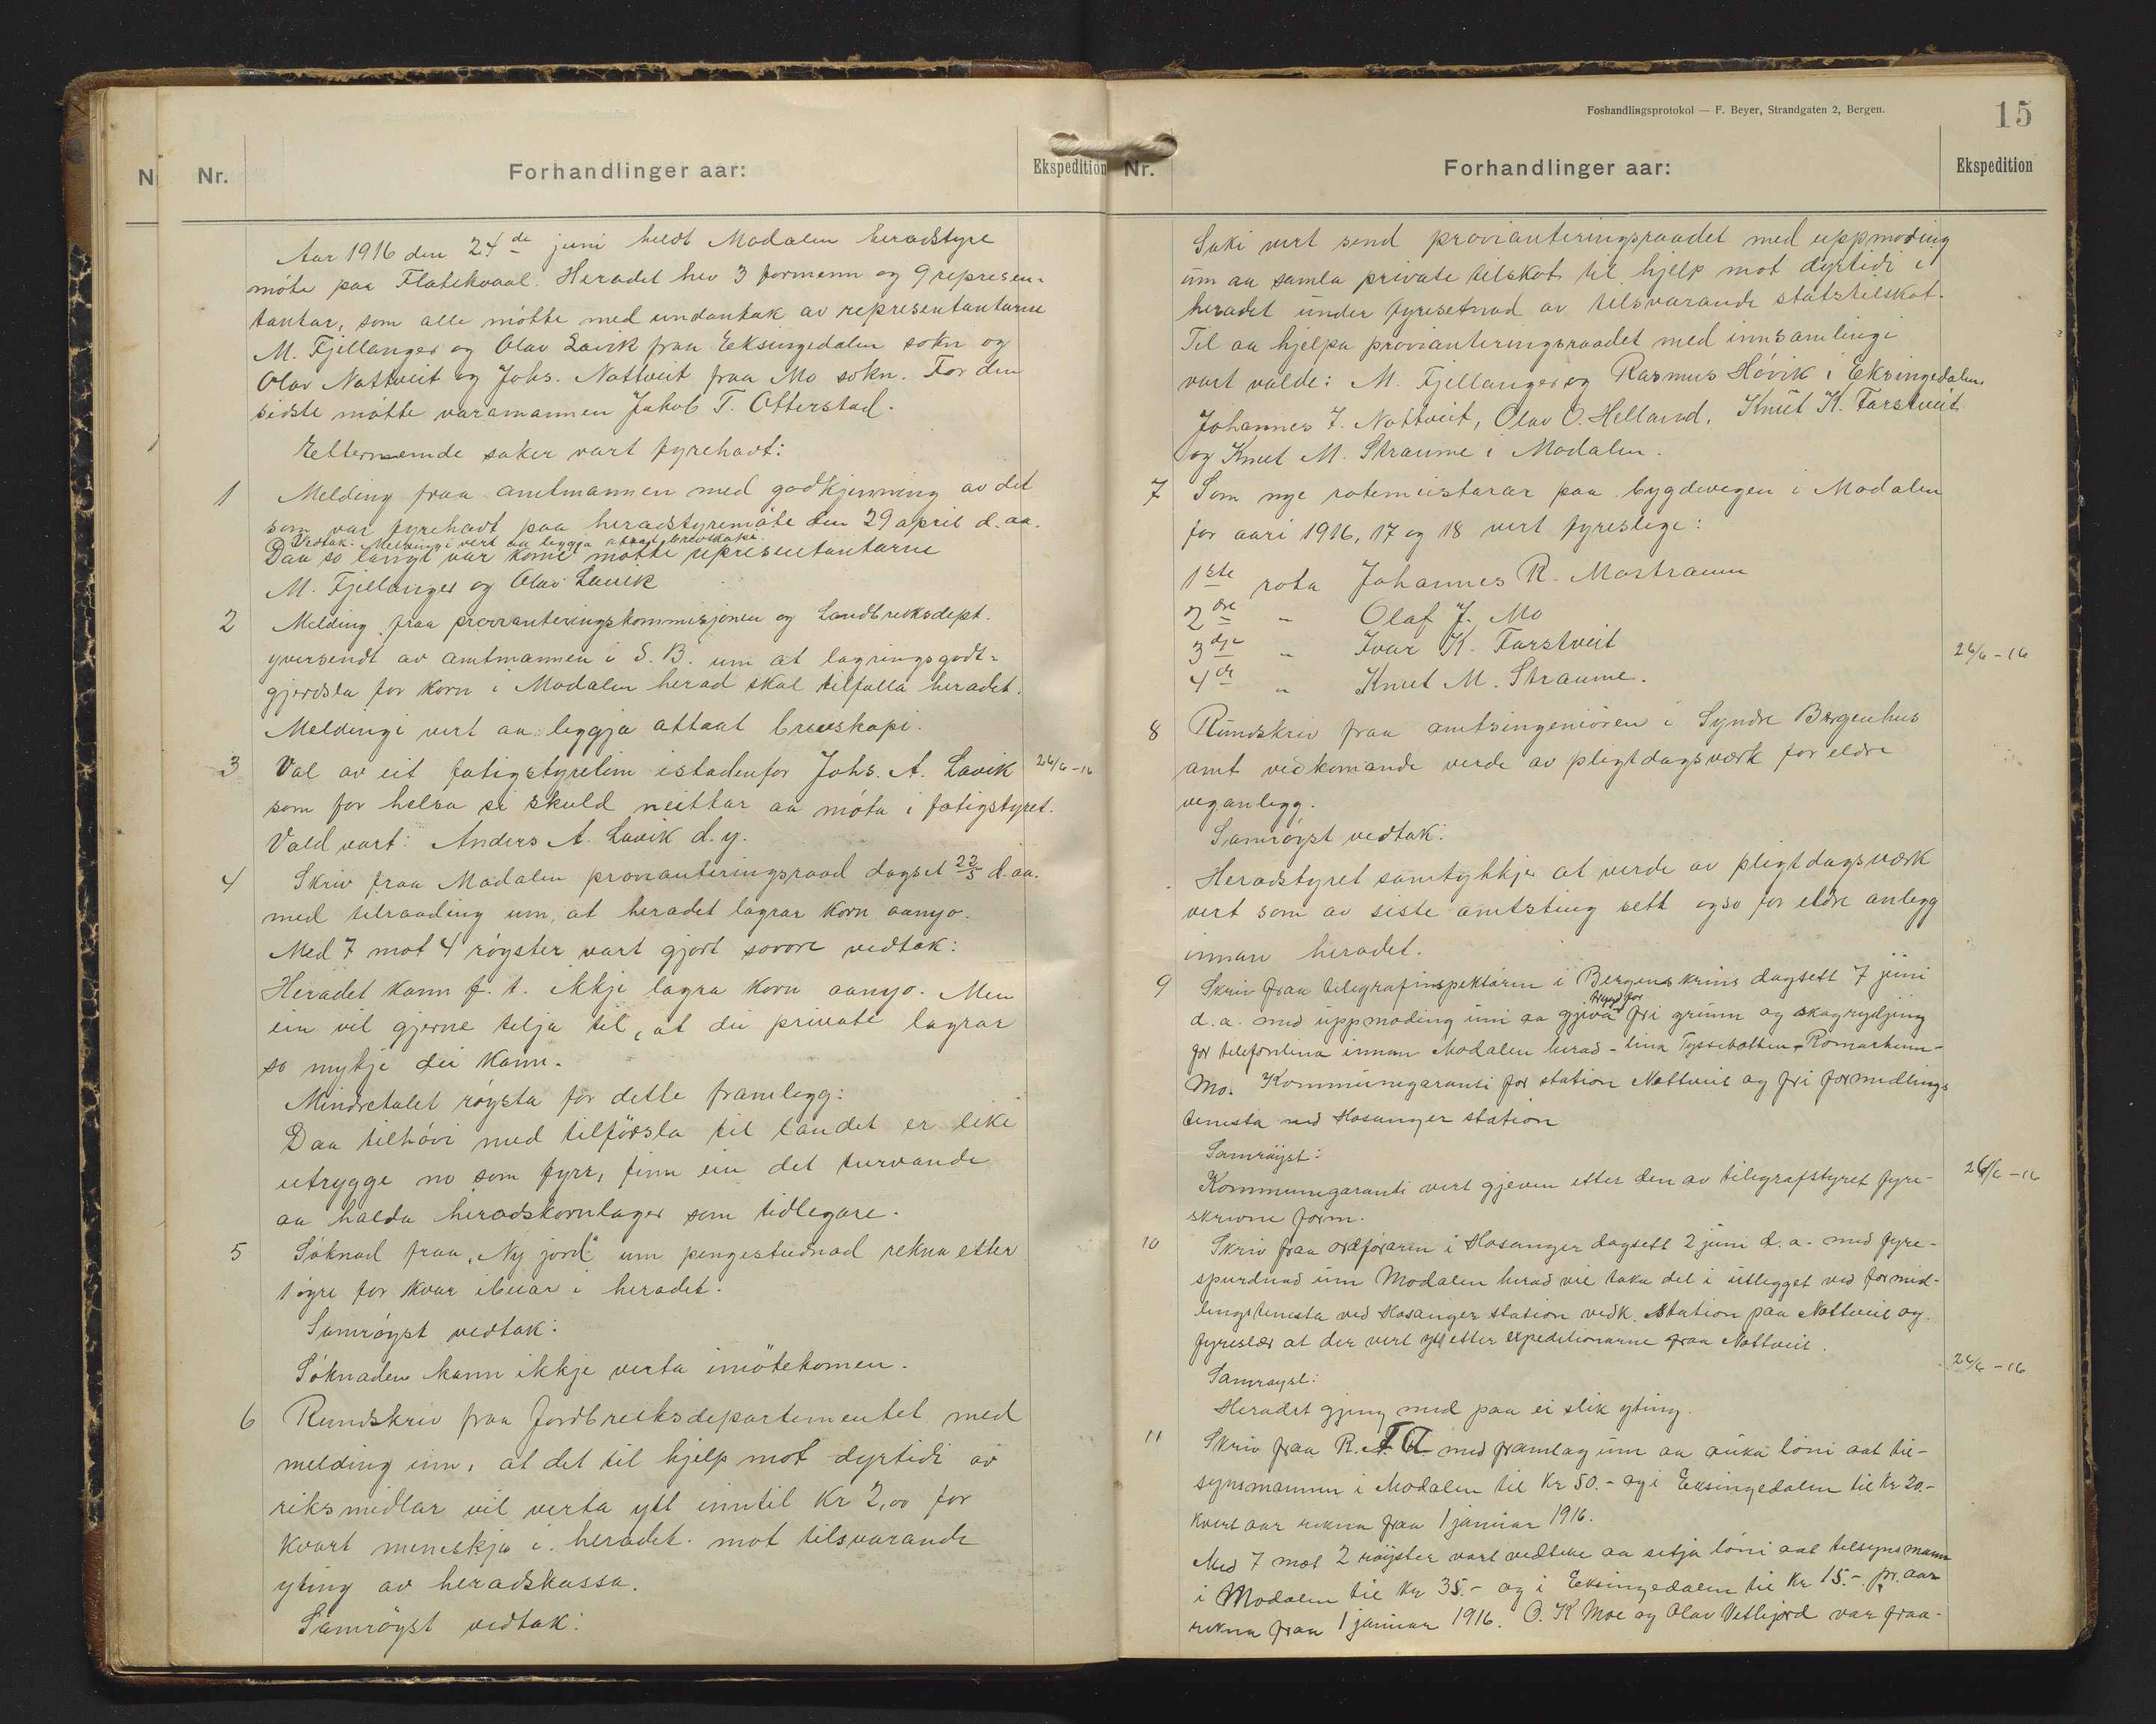 N
Nr.
Forhandlinger aar:
Ekspedition
Aar 1916 den 24de juni heldt Modalen heradstyre
møte paa Flatekvaal. Heradet hev 3 formenn og 9 represen-
tantar, som alle møtte med undantak av representantarne
M. Fjellanger og Olav Lavik fraa Eksingedalen sokn og
Olav Nottveit og Johs. Nottveit fraa Mo sokn. For den
sidste møtte varamannen Jakob T. Otterstad.
Etternemde saker vart fyrehavt:
1 Melding fraa amtmannen med godkjenning av det
som var fyrehavt paa heradstyremøte den 29 april d. aa.
Vedtak: Meldingi vert aa leggja attaat brevskapi.
Daa so langt var kome møtte representantarne
M. Fjellanger og Olav Lavik
2 Melding fraa provianteringskommisjonen og Landbruksdept.
yversendt av amtmannen i S. B. um at lagringsgodt-
gjerdsla for korn i Modalen herad skal tilfalla heradet.
Meldingi vert aa leggja attaat brevskapi.
3 Val av eit fatigstyrelim istadenfor Johs. A. Lavik 26/6-16
som for helsa si skuld neittar aa møta i fatigstyret.
Vald vart: Anders A. Lavik d. y.
4 Skriv fraa Modalen provianteringsraad dagset 22/5 d. aa.
med tilraading um, at heradet lagrar korn aanyo.
Med 7 mot 4 røyster vart gjort sovore vedtak:
Heradet kann f. t. ikkje lagra korn aanyo. Men
ein vil gjerne telja til, at dei private lagrar
so mykje dei kann.
Mindretalet røysta for dette framlegg:
Daa tilhøvi med tilførsla til landet er like
utrygge no som fyrr, finn ein det turvande
aa halda heradskornlager som tidlegare.
5 Søknad fraa "Ny jord" um pengestudnad rekna etter
1 øyre for kvar ibuar i heradet.
Samrøyst vedtak:
Søknaden kann ikkje verta imøtekomen.
6 Rundskriv fraa Jordbruksdepartementet med
melding um, at det til hjelp mot dyrtidi av
riksmidlar vil verta ytt inntil Kr 2,00 for
kvart meneskja i heradet mot tilsvarande
yting av heradskassa.
Samrøyst vedtak:
Foshandlingsprotokol — F. Beyer, Strandgaten 2, Bergen.
15
Nr.
Forhandlinger aar:
Ekspedition
Saki vert send provianteringsraadet med uppmoding
um aa samla private tilskot til hjelp mot dyrtidi i
heradet under fyresetnad av tilsvarande statstilskot.
Til aa hjelpa provianteringsraadet med innsamlingi
vart valde: M. Fjellanger og Rasmus Høvik i Eksingedalen.
Johannes J. Nottveit, Olav O. Helland, Knut K. Farstveit
og Knut M. Straume i Modalen.
7 Som nye rotemeistarar paa bygdevegen i Modalen
for aari 1916, 17 og 18 vert fyreslege:
1ste rota Johannes R. Mostraum
2dre " Olaf J. Mo
3dje " Ivar K. Farstveit
26/6-16
4de " Knut M. Straume.
8 Rundskriv fraa amtsingeniøren i Syndre Bergenhus
amt vedkomande verde av pligtdagsværk for eldre
veganlegg.
Samrøyst vedtak:
Heradstyret samtykkje at verde av pligtdagsværk
vert som av siste amtsting sett ogso for eldre anlegg
innan heradet.
9 Skriv fraa telegrafinspektøren i Bergens krins dagsett 7 juni
d. a. med uppmoding um aa gjeva trygd for fri grunn og skogrydjing
for telefonlina innan Modalen herad - lina Tyssebotten - Romarheim -
Mo. Kommunegaranti for station Nottveit og fri formidlings
tenesta ved Hosanger station
Samrøyst:
Kommunegaranti vert gjeven etter den av telegrafstyret fyre-
26/6-16
skrivne form.
10 Skriv fraa ordføraren i Hosanger dagsett 2 juni d. a. med fyre-
spurdnad um Modalen herad vil taka del i utlegget ved formid-
lingstenesta ved Hosanger station vedk. station paa Nottveit og
fyreslær at der vert ytt etter expeditionarne fraa Nottveit.
26/6-16
Samrøyst:
Heradet gjeng med paa ei slik yting.
11 Skriv fraa R. med framlag um aa auka løni aat til-
synsmannen i Modalen til Kr 50.- og i Eksingedalen til Kr 20.-
kvert aar rekna fraa 1 januar 1916.
Med 7 mot 2 røyster vart vedteke aa setja løni aat tilsynsmann
i Modalen til Kr 35.- og i Eksingedalen til Kr 15.- pr. aar
rekna fraa 1 januar 1916. O. K. Moe og Olav Vetlejord var fraa-